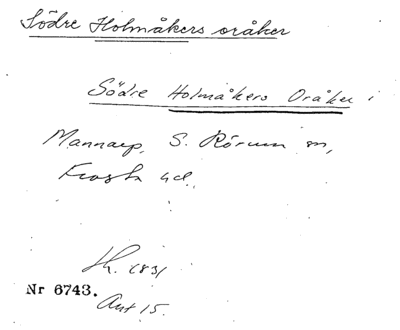 Södre Holmåkers oråker
Södre Holmåkers Oråker i
Mannarp, S. Rörum sn,
Frosta hd.
1831
Nr 6743.
Ant 15.